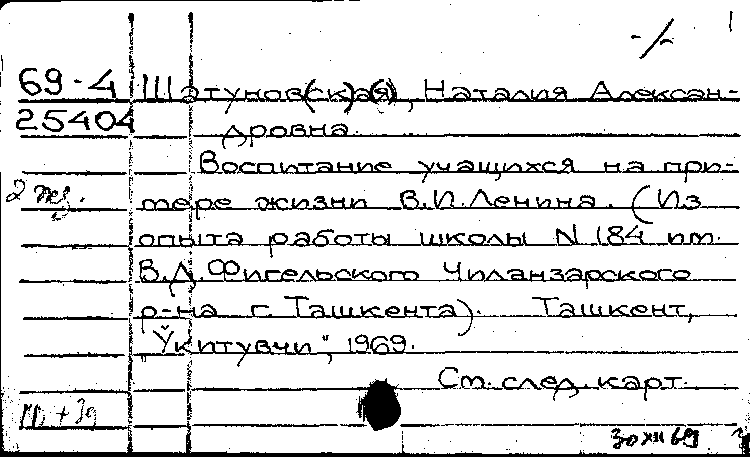 -/-
69-4 Шатуновс(кая)(б), Наталия Алексан-
25404 дровна.
Воспитание учащихся на при-
2 экз. мере жизни В.И.Ленина. (Из
опыта работы школы N 184 им.
В.Д.Фигельского Чиланзарского
р-на г. Ташкента). Ташкент,
"Ўкитувчи", 1969.
См. след. карт.
30 XII 69